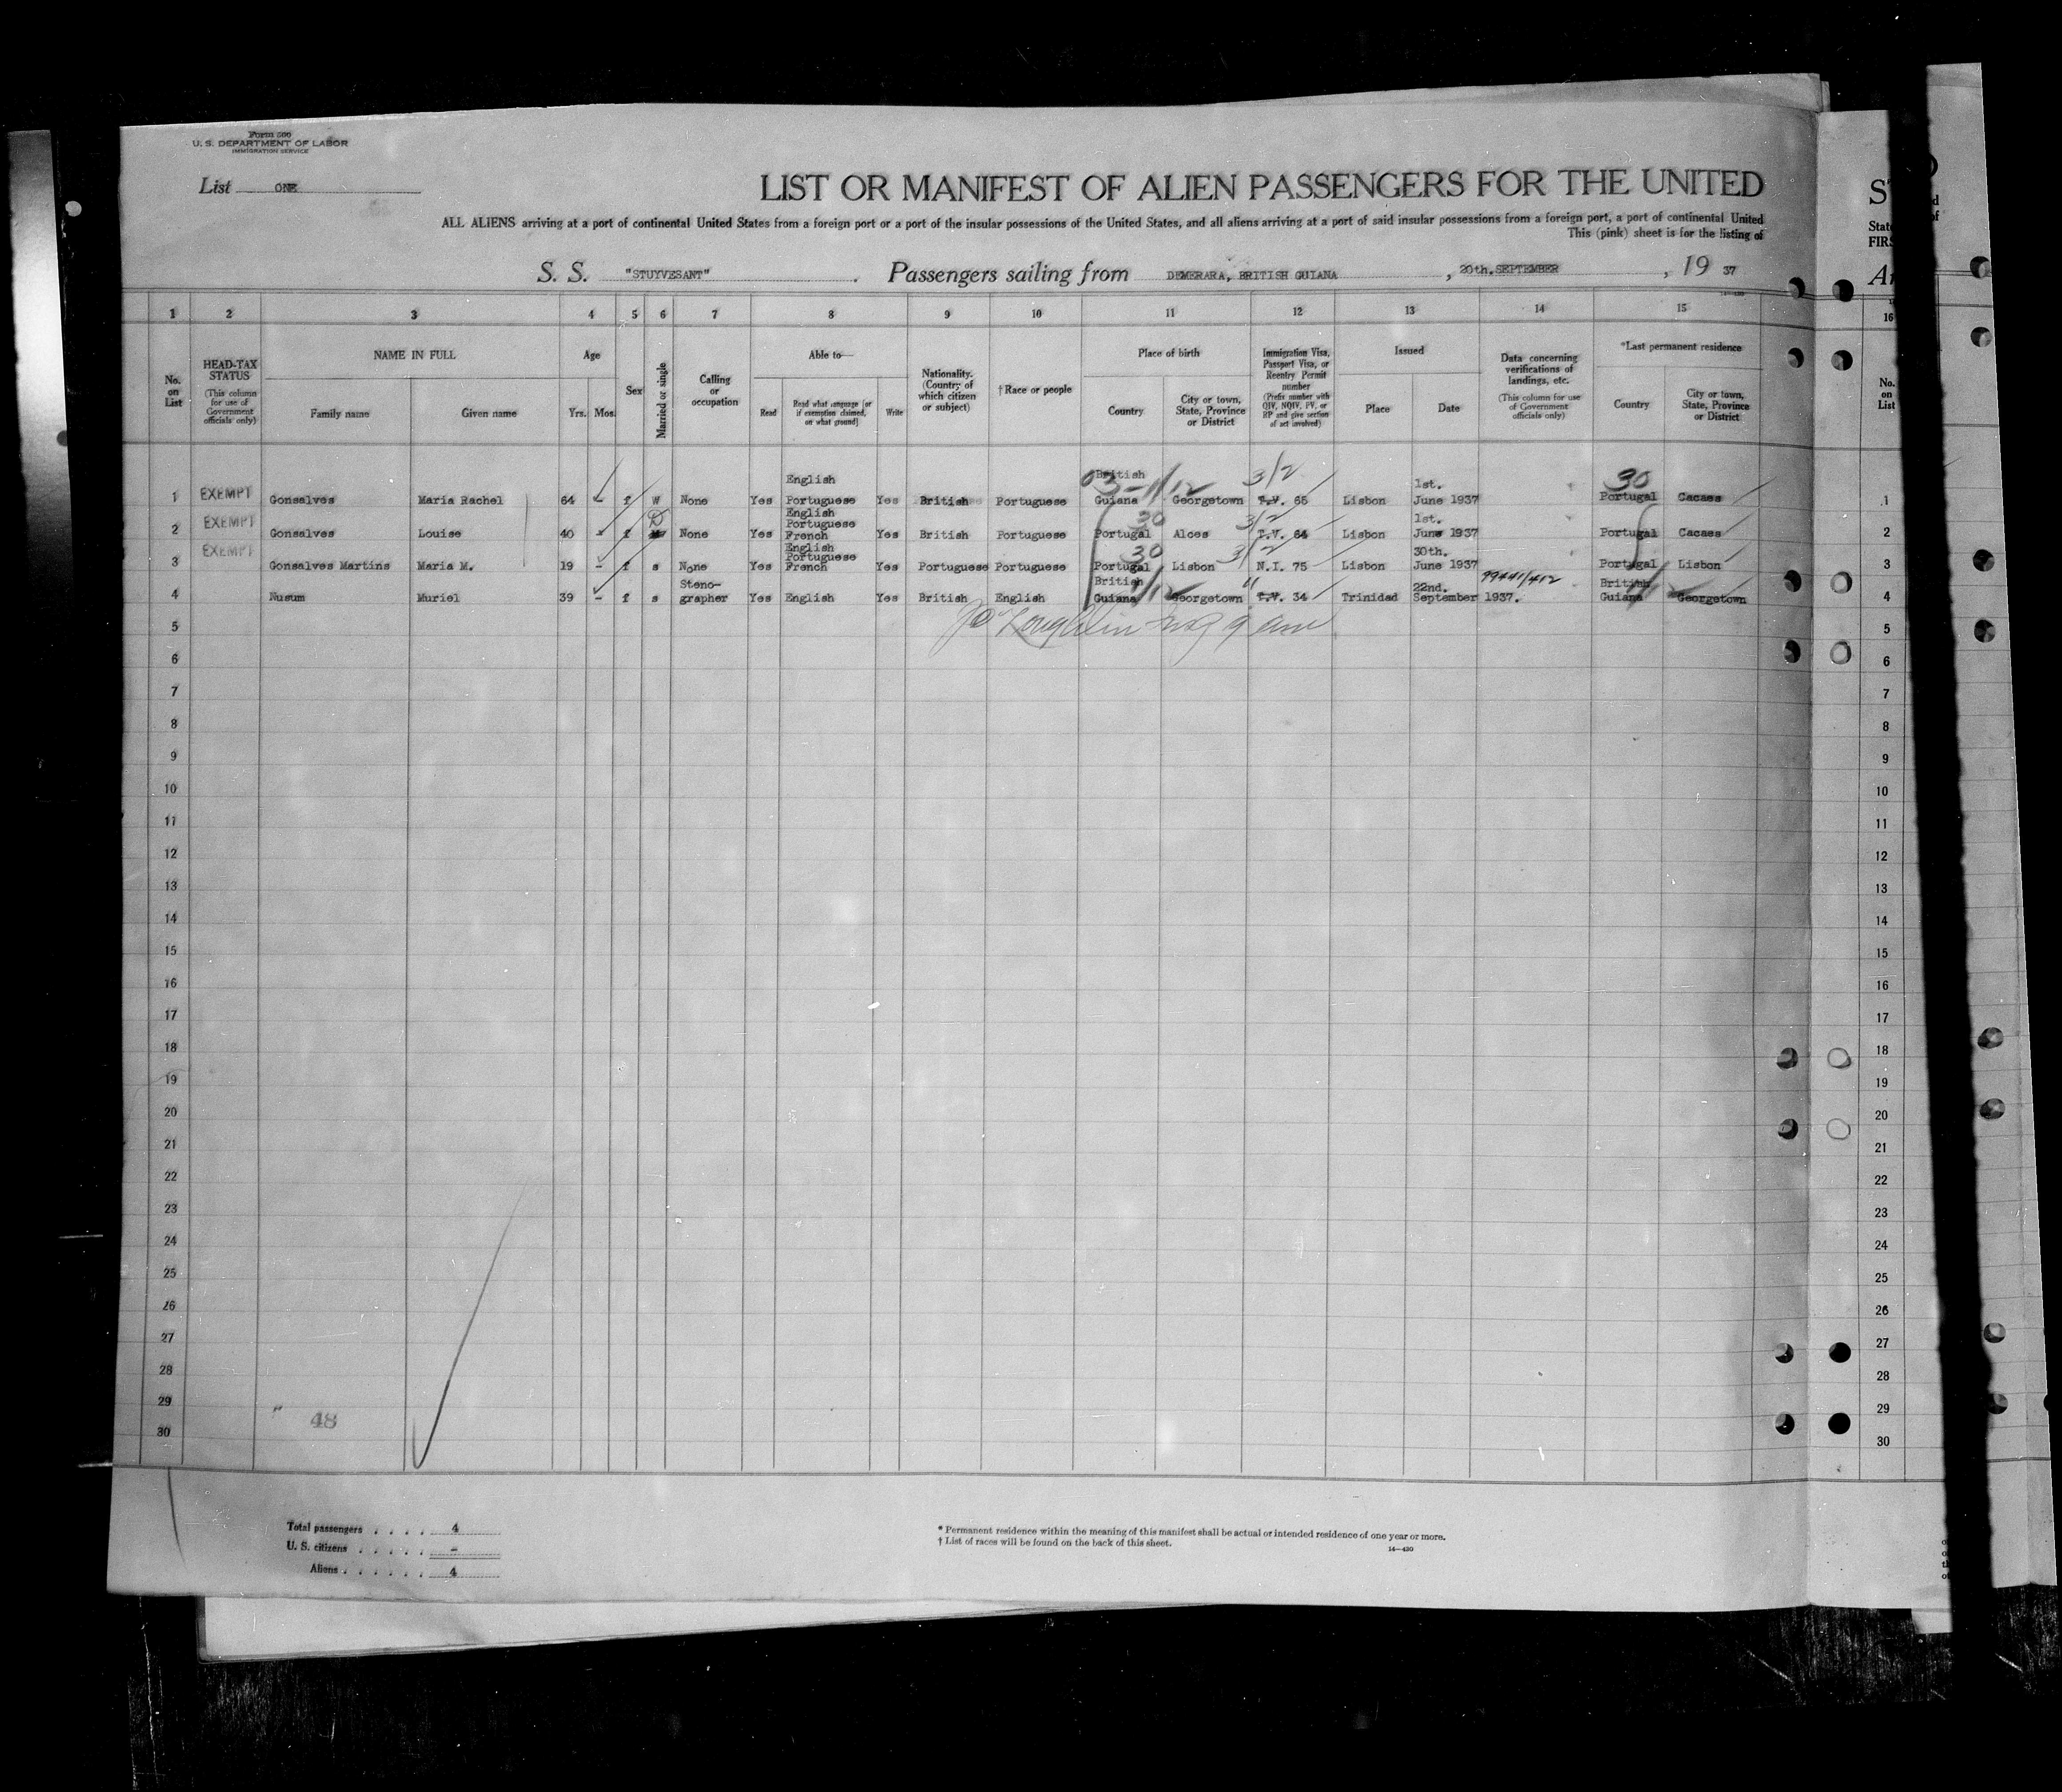 Form 500
U. S. DEPARTMENT OF LABOR
IMMIGRATION SERVICE
List ONE
LIST OR MANIFEST OF ALIEN PASSENGERS FOR THE UNITED
ALL ALIENS arriving at a port of continental United States from a foreign port or a port of the insular possessions of the United States, and all aliens arriving at a port of said insular possessions from a foreign port, a port of continental United
This (pink) sheet is for the listing of
S. S. "STUYVESANT". Passengers sailing from DEMERARA, BRITISH GUIANA, 20th. SEPTEMBER, 19 37
1 2 3 4 5 6 7 8 9 10 11 12 13 14 15 16
No. on List
HEAD-TAX STATUS (This column for use of Government officials only)
NAME IN FULL
Family name
Given name
Age
Yrs. Mos.
Sex
Married or single
Calling or occupation
Able to—
Read
Read what language (or if exemption claimed, on what ground)
Write
Nationality. (Country of which citizen or subject)
†Race or people
Place of birth
Country
City or town, State, Province or District
Immigration Visa, Passport Visa, or Reentry Permit number (Prefix number with QIV, NQIV, PV, or RP and give section of act involved)
Issued
Place
Date
Data concerning verifications of landings, etc. (This column for use of Government officials only)
*Last permanent residence
Country
City or town, State, Province or District
No. on List
1 EXEMPT Gonsalves Maria Rachel 64 - f W None Yes English Portuguese Yes British Portuguese British Guiana Georgetown 3/2 T.V. 65 Lisbon 1st. June 1937 30 Portugal Cacaes 1
2 EXEMPT Gonsalves Louise 40 - f D None Yes English Portuguese French Yes British Portuguese 30 Portugal Alces 3/2 T.V. 64 Lisbon 1st. June 1937 Portugal Cacaes 2
3 EXEMPT Gonsalves Martins Maria M. 19 - f s None Yes English Portuguese French Yes Portuguese Portuguese 30 Portugal Lisbon 3/2 N.I. 75 Lisbon 30th. June 1937 Portugal Lisbon 3
4 Nusum Muriel 39 - f s Steno-grapher Yes English Yes British English British Guiana Georgetown T.V. 34 Trinidad 22nd. September 1937. British Guiana Georgetown 4
5 5
6 6
7 7
8 8
9 9
10 10
11 11
12 12
13 13
14 14
15 15
16 16
17 17
18 18
19 19
20 20
21 21
22 22
23 23
24 24
25 25
26 26
27 27
28 28
29 29
30 30
48
Total passengers . . . . 4
U. S. citizens . . . . . -
Aliens . . . . . . 4
* Permanent residence within the meaning of this manifest shall be actual or intended residence of one year or more.
† List of races will be found on the back of this sheet.
14—430